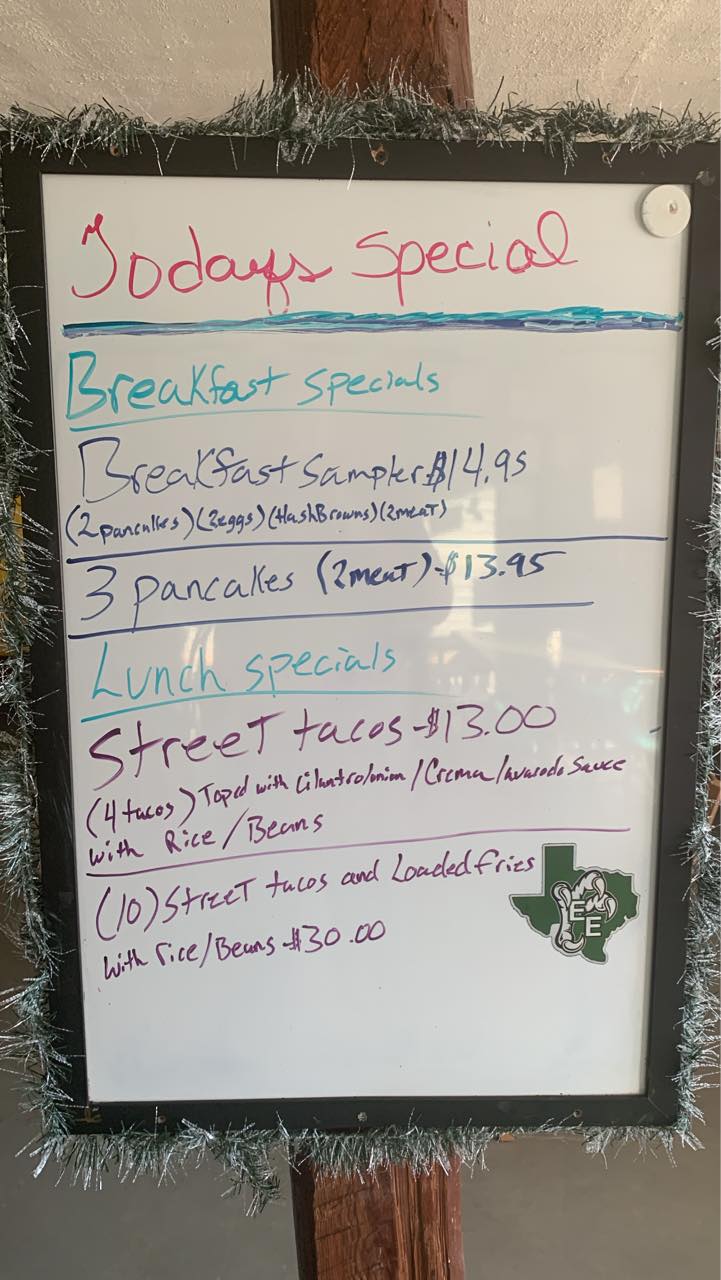 Todays Special
Breakfast specials
Breakfast Sampler $14.95
(2 pancakes) (2eggs) (HashBrowns) (2meat)
3 pancakes (2meat) - $13.95
Lunch specials
Street tacos - $13.00
(4 tacos) Toped with Cilantro/onion / Crema / avacado Sauce
with Rice / Beans
(10) Street tacos and Loaded fries
with rice/Beans - $30.00
E
E